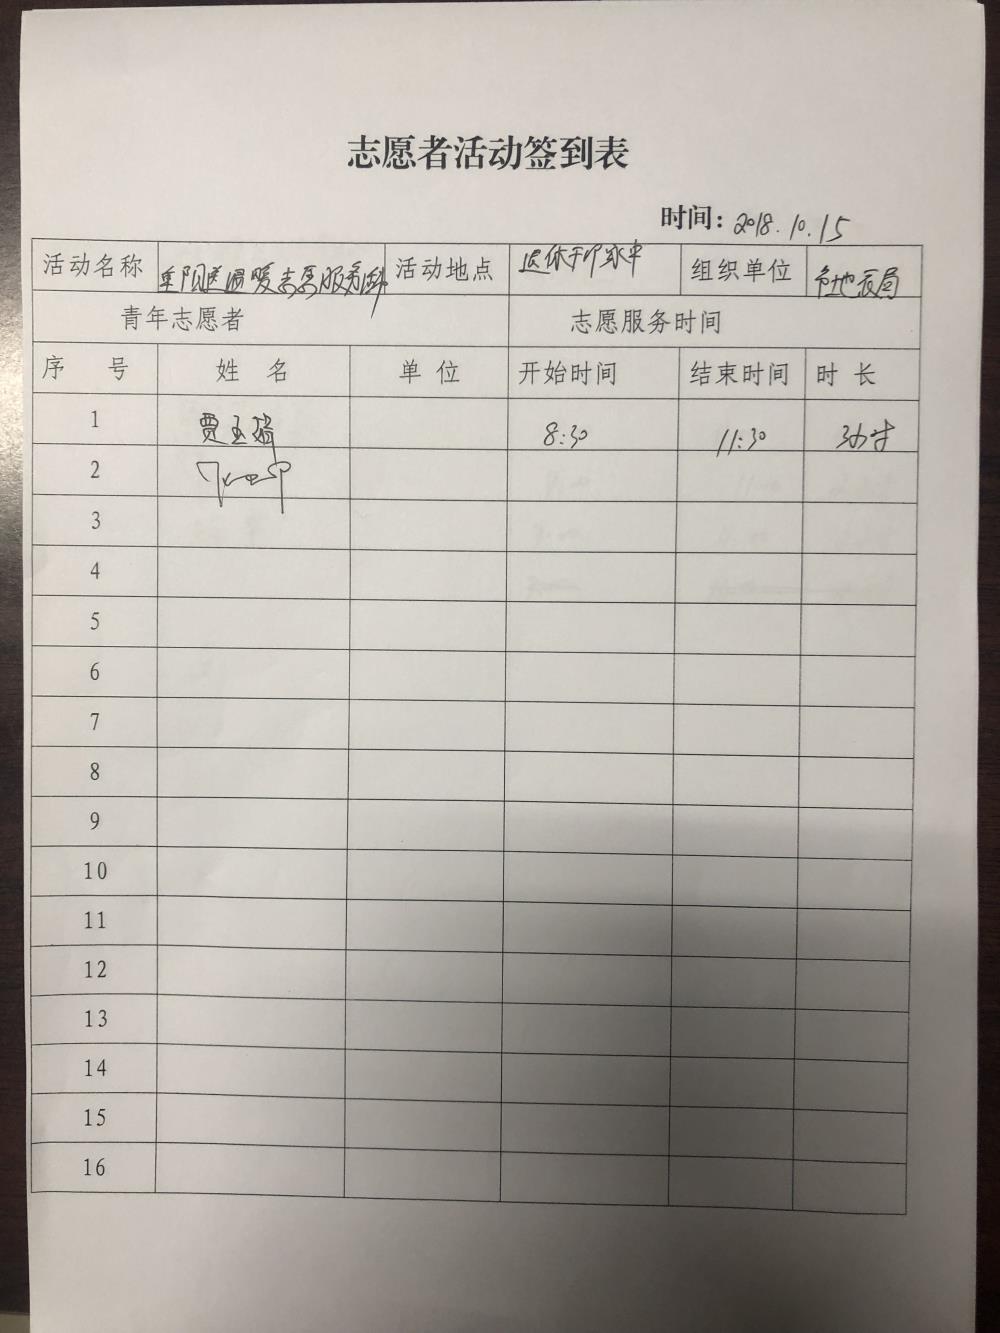 志愿者活动签到表
时间: 2018.10.15
活动名称 重阳送温暖志愿服务活动 活动地点 退休干部家中 组织单位 市地震局
青年志愿者 志愿服务时间
序 号 姓 名 单 位 开始时间 结束时间 时 长
1 贾玉婧 8:30 11:30 3小时
2
3
4
5
6
7
8
9
10
11
12
13
14
15
16